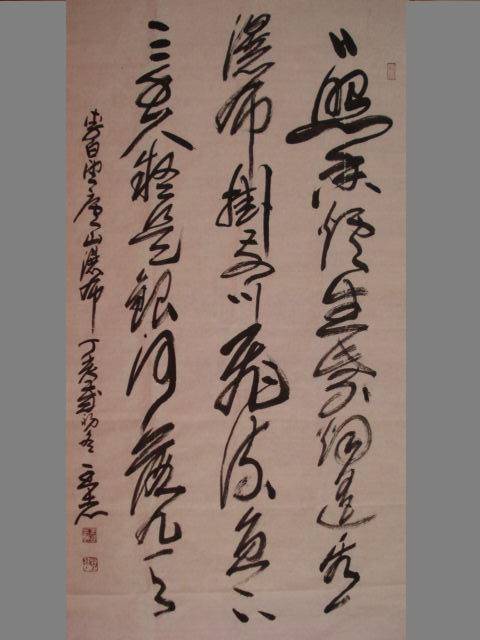 日照香爐生紫烟遥看
瀑布掛前川飛流直下
三千尺疑是銀河落九天
李白望廬山瀑布 丁亥歲初冬